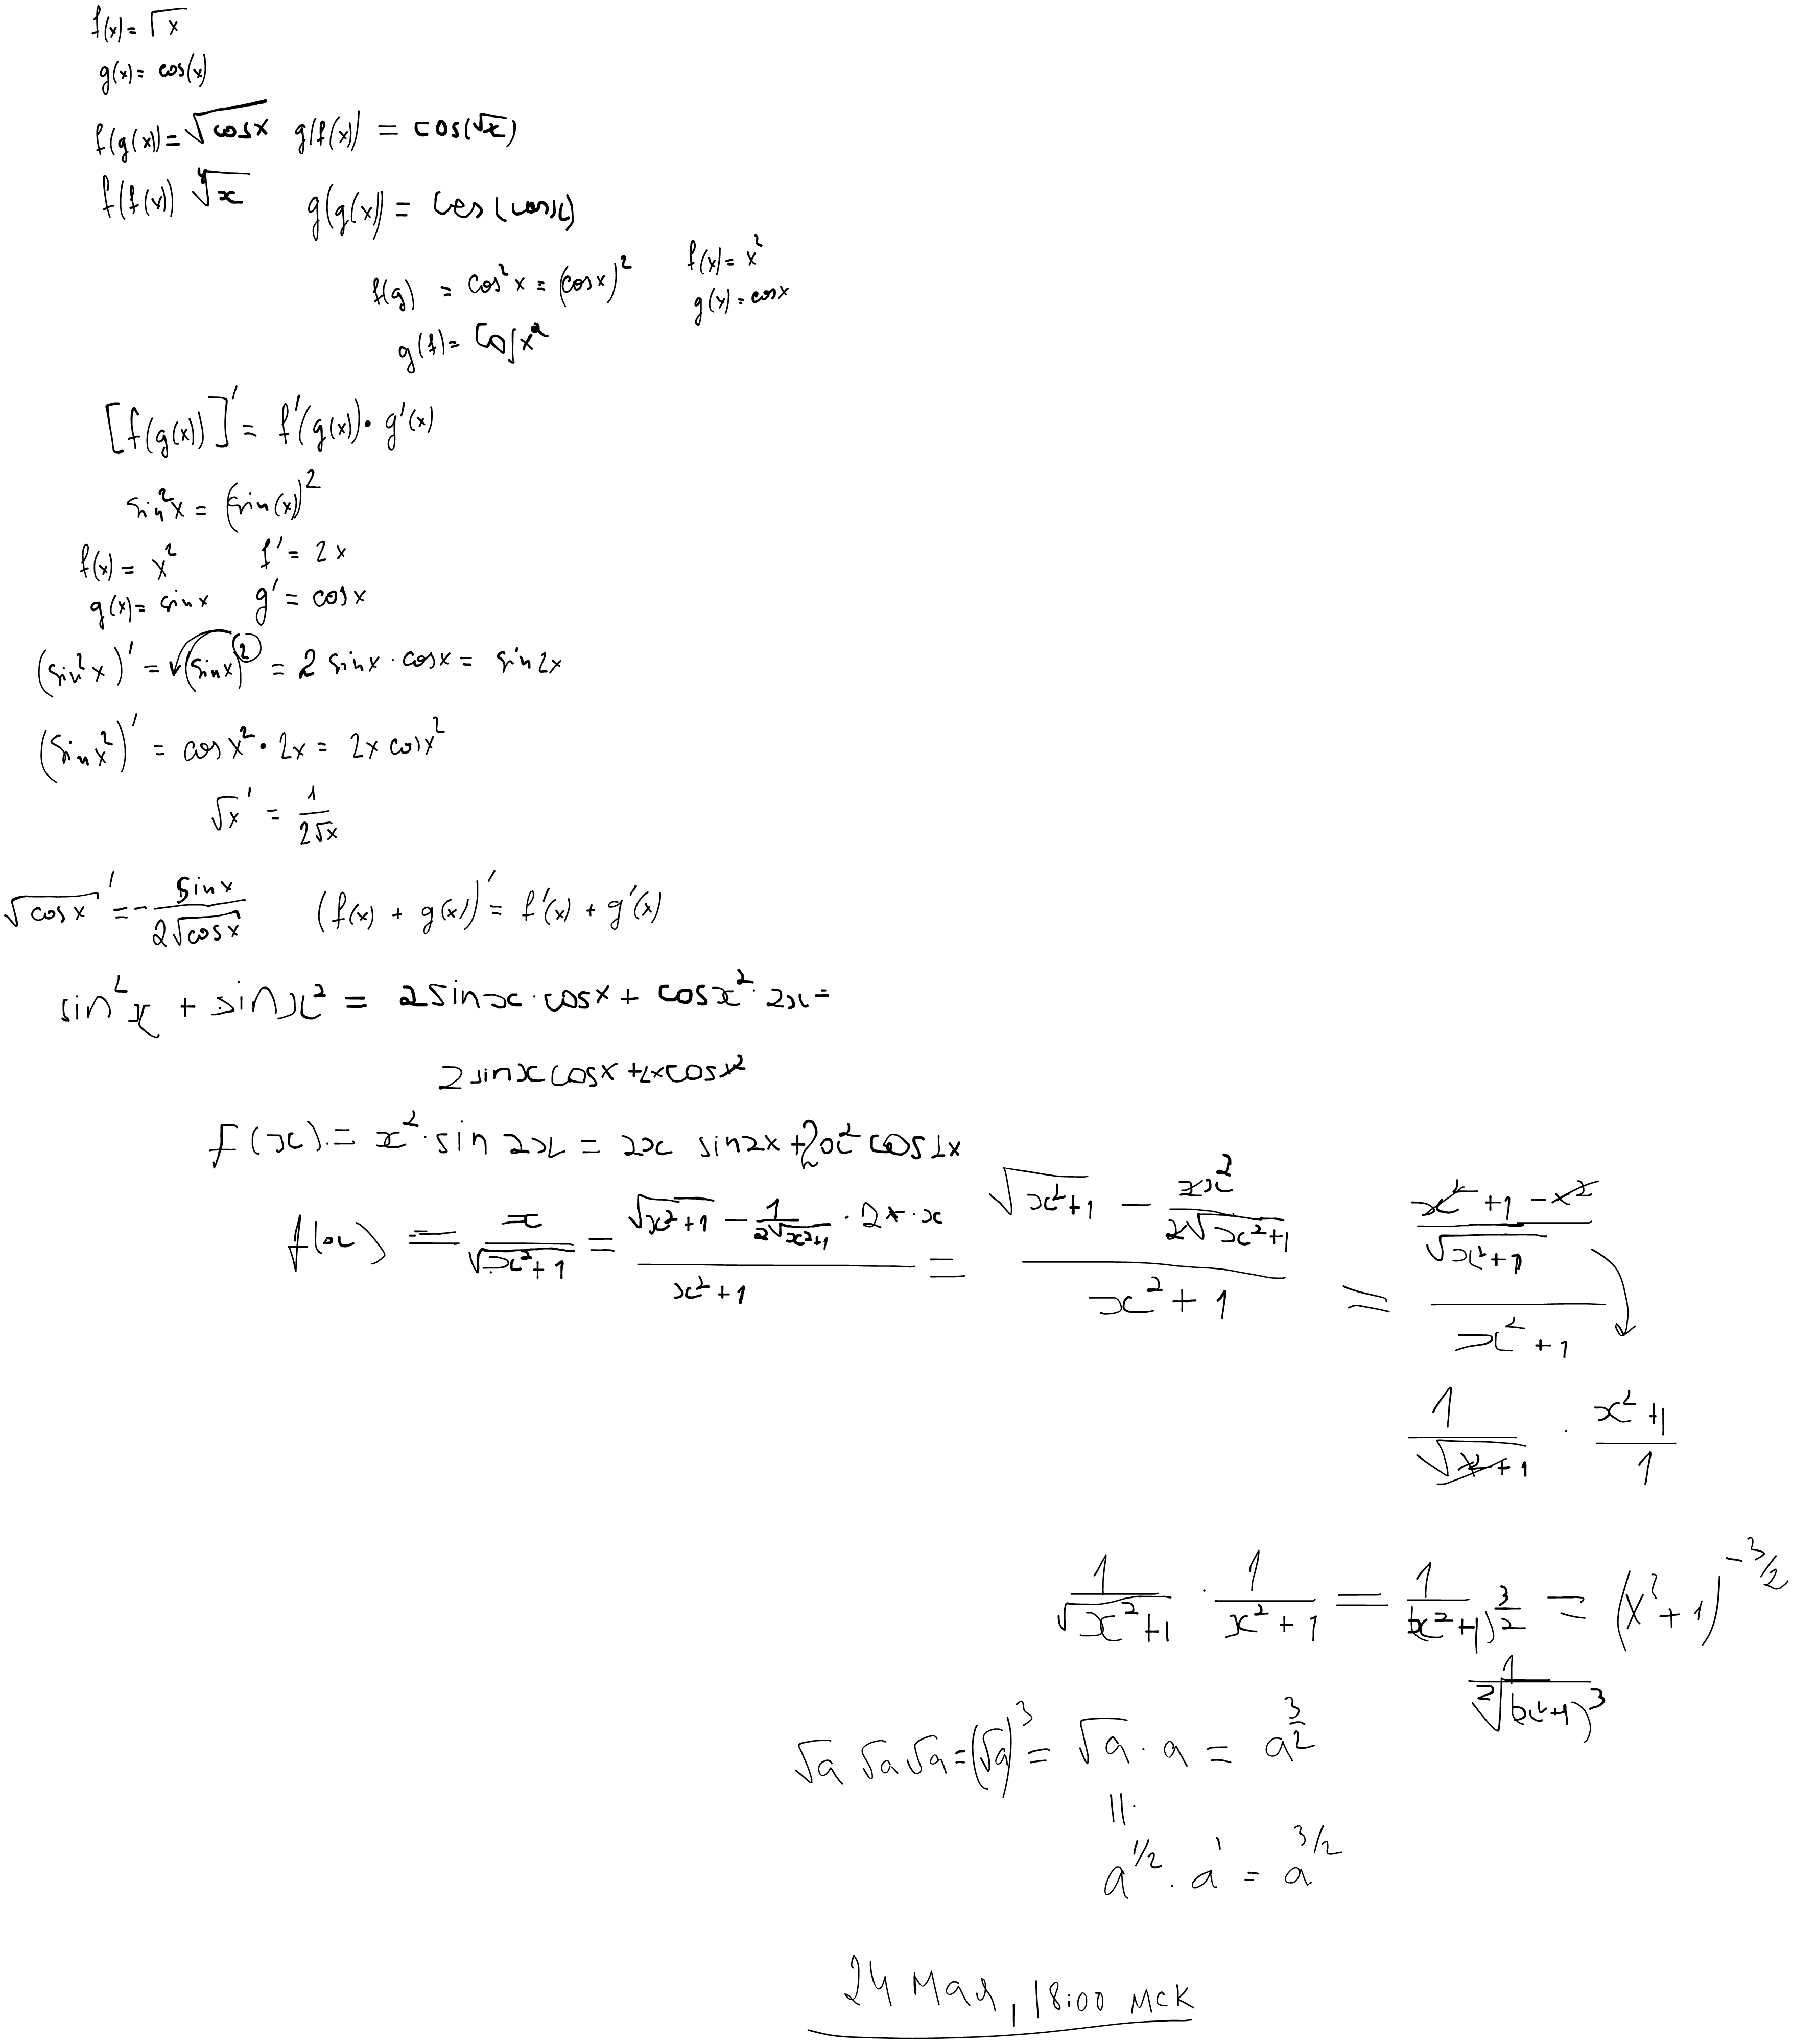 f(x) = √x
g(x) = cos(x)
f(g(x)) = √cosx g(f(x) = cos(√x)
f(f(x)) ⁴√x g(g(x)) = cos(cosx)
f(g) = cos²x = (cosx)² f(x) = x²
g(f) = cosx² g(x) = cosx
[f(g(x))]' = f'(g(x)) · g'(x)
sin²x = (sin(x))²
f(x) = x² f' = 2x
g(x) = sinx g' = cosx
(sin²x)' = (sinx)² = 2 sinx · cosx = sin2x
(sinx²)' = cosx² · 2x = 2x cosx²
√x' = 1/(2√x)
√cosx' = - sinx/(2√cosx) (f(x) + g(x))' = f'(x) + g'(x)
sin²x + sinx² = 2sinx · cosx + cosx² · 2x =
2sinxcosx + 2xcosx²
f(x) = x² · sin2x = 2x sin2x + 2x² cos2x
f(x) = x/√(x²+1) = (√(x²+1) - 1/(2√(x²+1)) · 2x · x)/(x²+1) = (√(x²+1) - 2x²/(2√(x²+1)))/(x²+1) = ((x²+1-x²)/√(x²+1))/(x²+1)
1/√(x²+1) · (x²+1)/1
1/√(x²+1) · 1/(x²+1) = 1/(x²+1)^(3/2) = (x²+1)^(-3/2)
1/²√(x²+1)³
√a √a √a = (√a)³ = √a · a = a^(3/2)
||
a^(1/2) · a¹ = a^(3/2)
24 мая, 18:00 мск